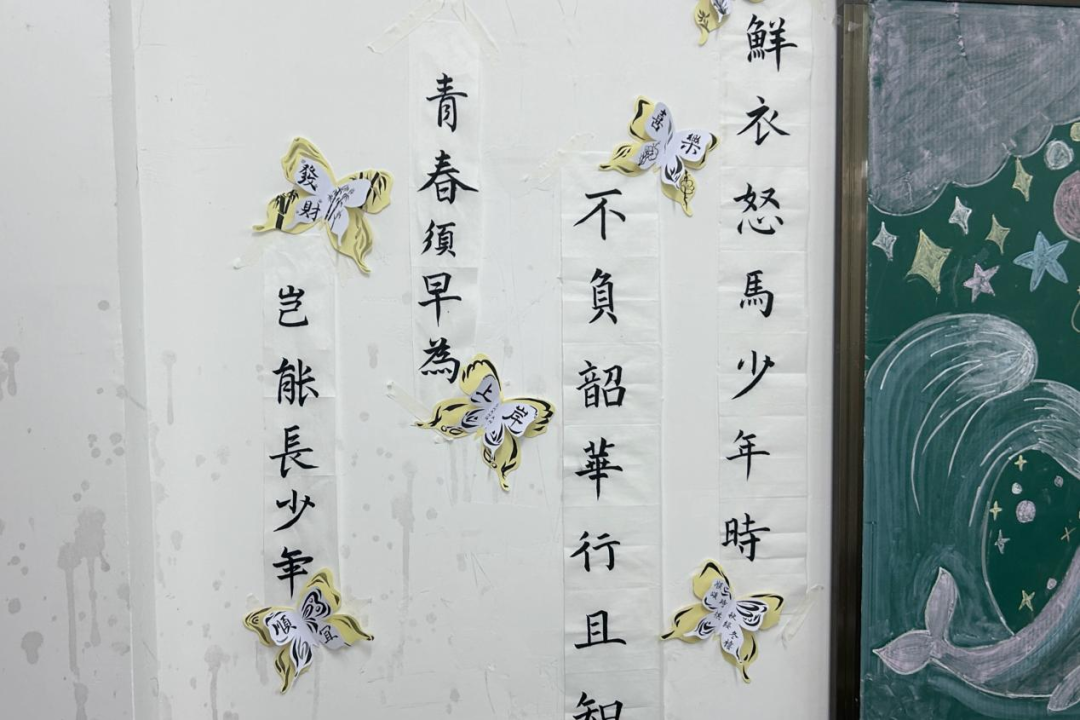 鮮衣怒馬少年時
不負韶華行且知
青春須早為
豈能長少年
喜樂
上岸
發財
順宜